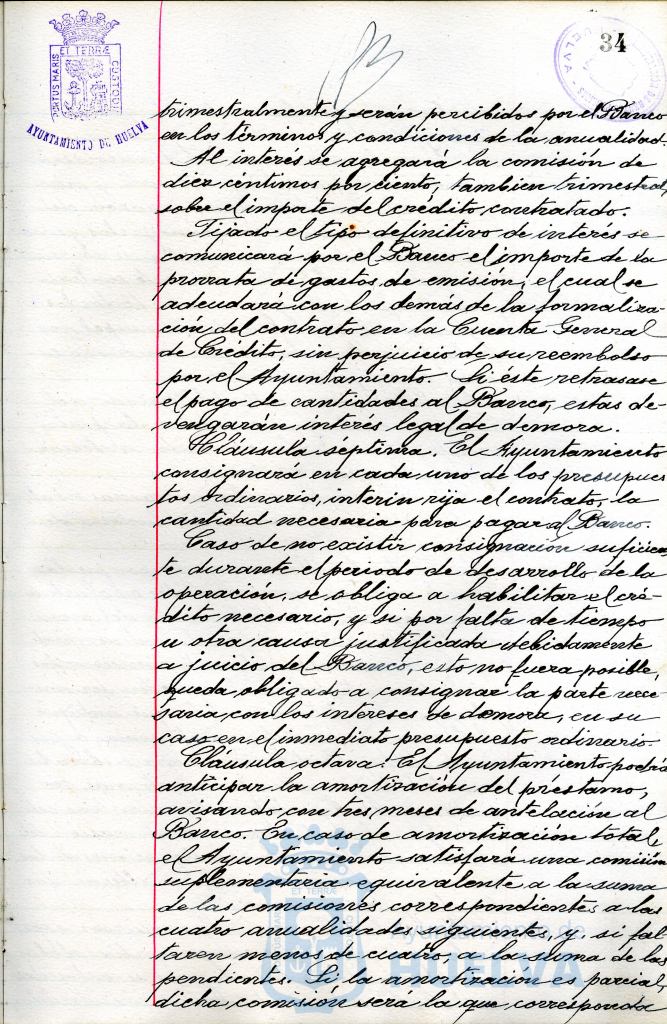 34
PORTUS MARIS ET TERRÆ CUSTODIA
AYUNTAMIENTO DE HUELVA
HUELVA
trimestralmente y serán percibidos por el Banco
en los términos y condiciones de la anualidad.
Al interés se agregará la comisión de
diez céntimos por ciento, tambien trimestral,
sobre el importe del crédito contratado.
Fijado el tipo definitivo de interés se
comunicará por el Banco el importe de la
prorrata de gastos de emisión, el cual se
adeudará con los demás de la formaliza-
ción del contrato en la Cuenta General
de Crédito, sin perjuicio de su reembolso
por el Ayuntamiento. Si éste retrasase
el pago de cantidades al Banco, estas de-
vengarán interés legal de demora.
Cláusula séptima. El Ayuntamiento
consignará en cada uno de los presupues
tos ordinarios, interin rija el contrato, la
cantidad necesaria para pagar al Banco.
Caso de no existir consignación suficien
te durante el periodo de desarrollo de la
operación, se obliga a habilitar el cré-
dito necesario, y si por falta de tiempo
u otra causa justificada debidamente
a juicio del Banco, esto no fuera posible,
queda obligado a consignar la parte nece-
saria, con los intereses de demora, en su
caso en el inmediato presupuesto ordinario.
Cláusula octava. El Ayuntamiento podrá
anticipar la amortización del préstamo,
avisando con tres meses de antelación al
Banco. En caso de amortización total,
el Ayuntamiento satisfará una comisión
suplementaria equivalente a la suma
de las comisiones correspondientes a las
cuatro anualidades siguientes, y, si fal
taren menos de cuatro, a la suma de las
pendientes. Si la amortización es parcial,
dicha comisión será la que corresponda
Ayuntamiento de
HUELVA